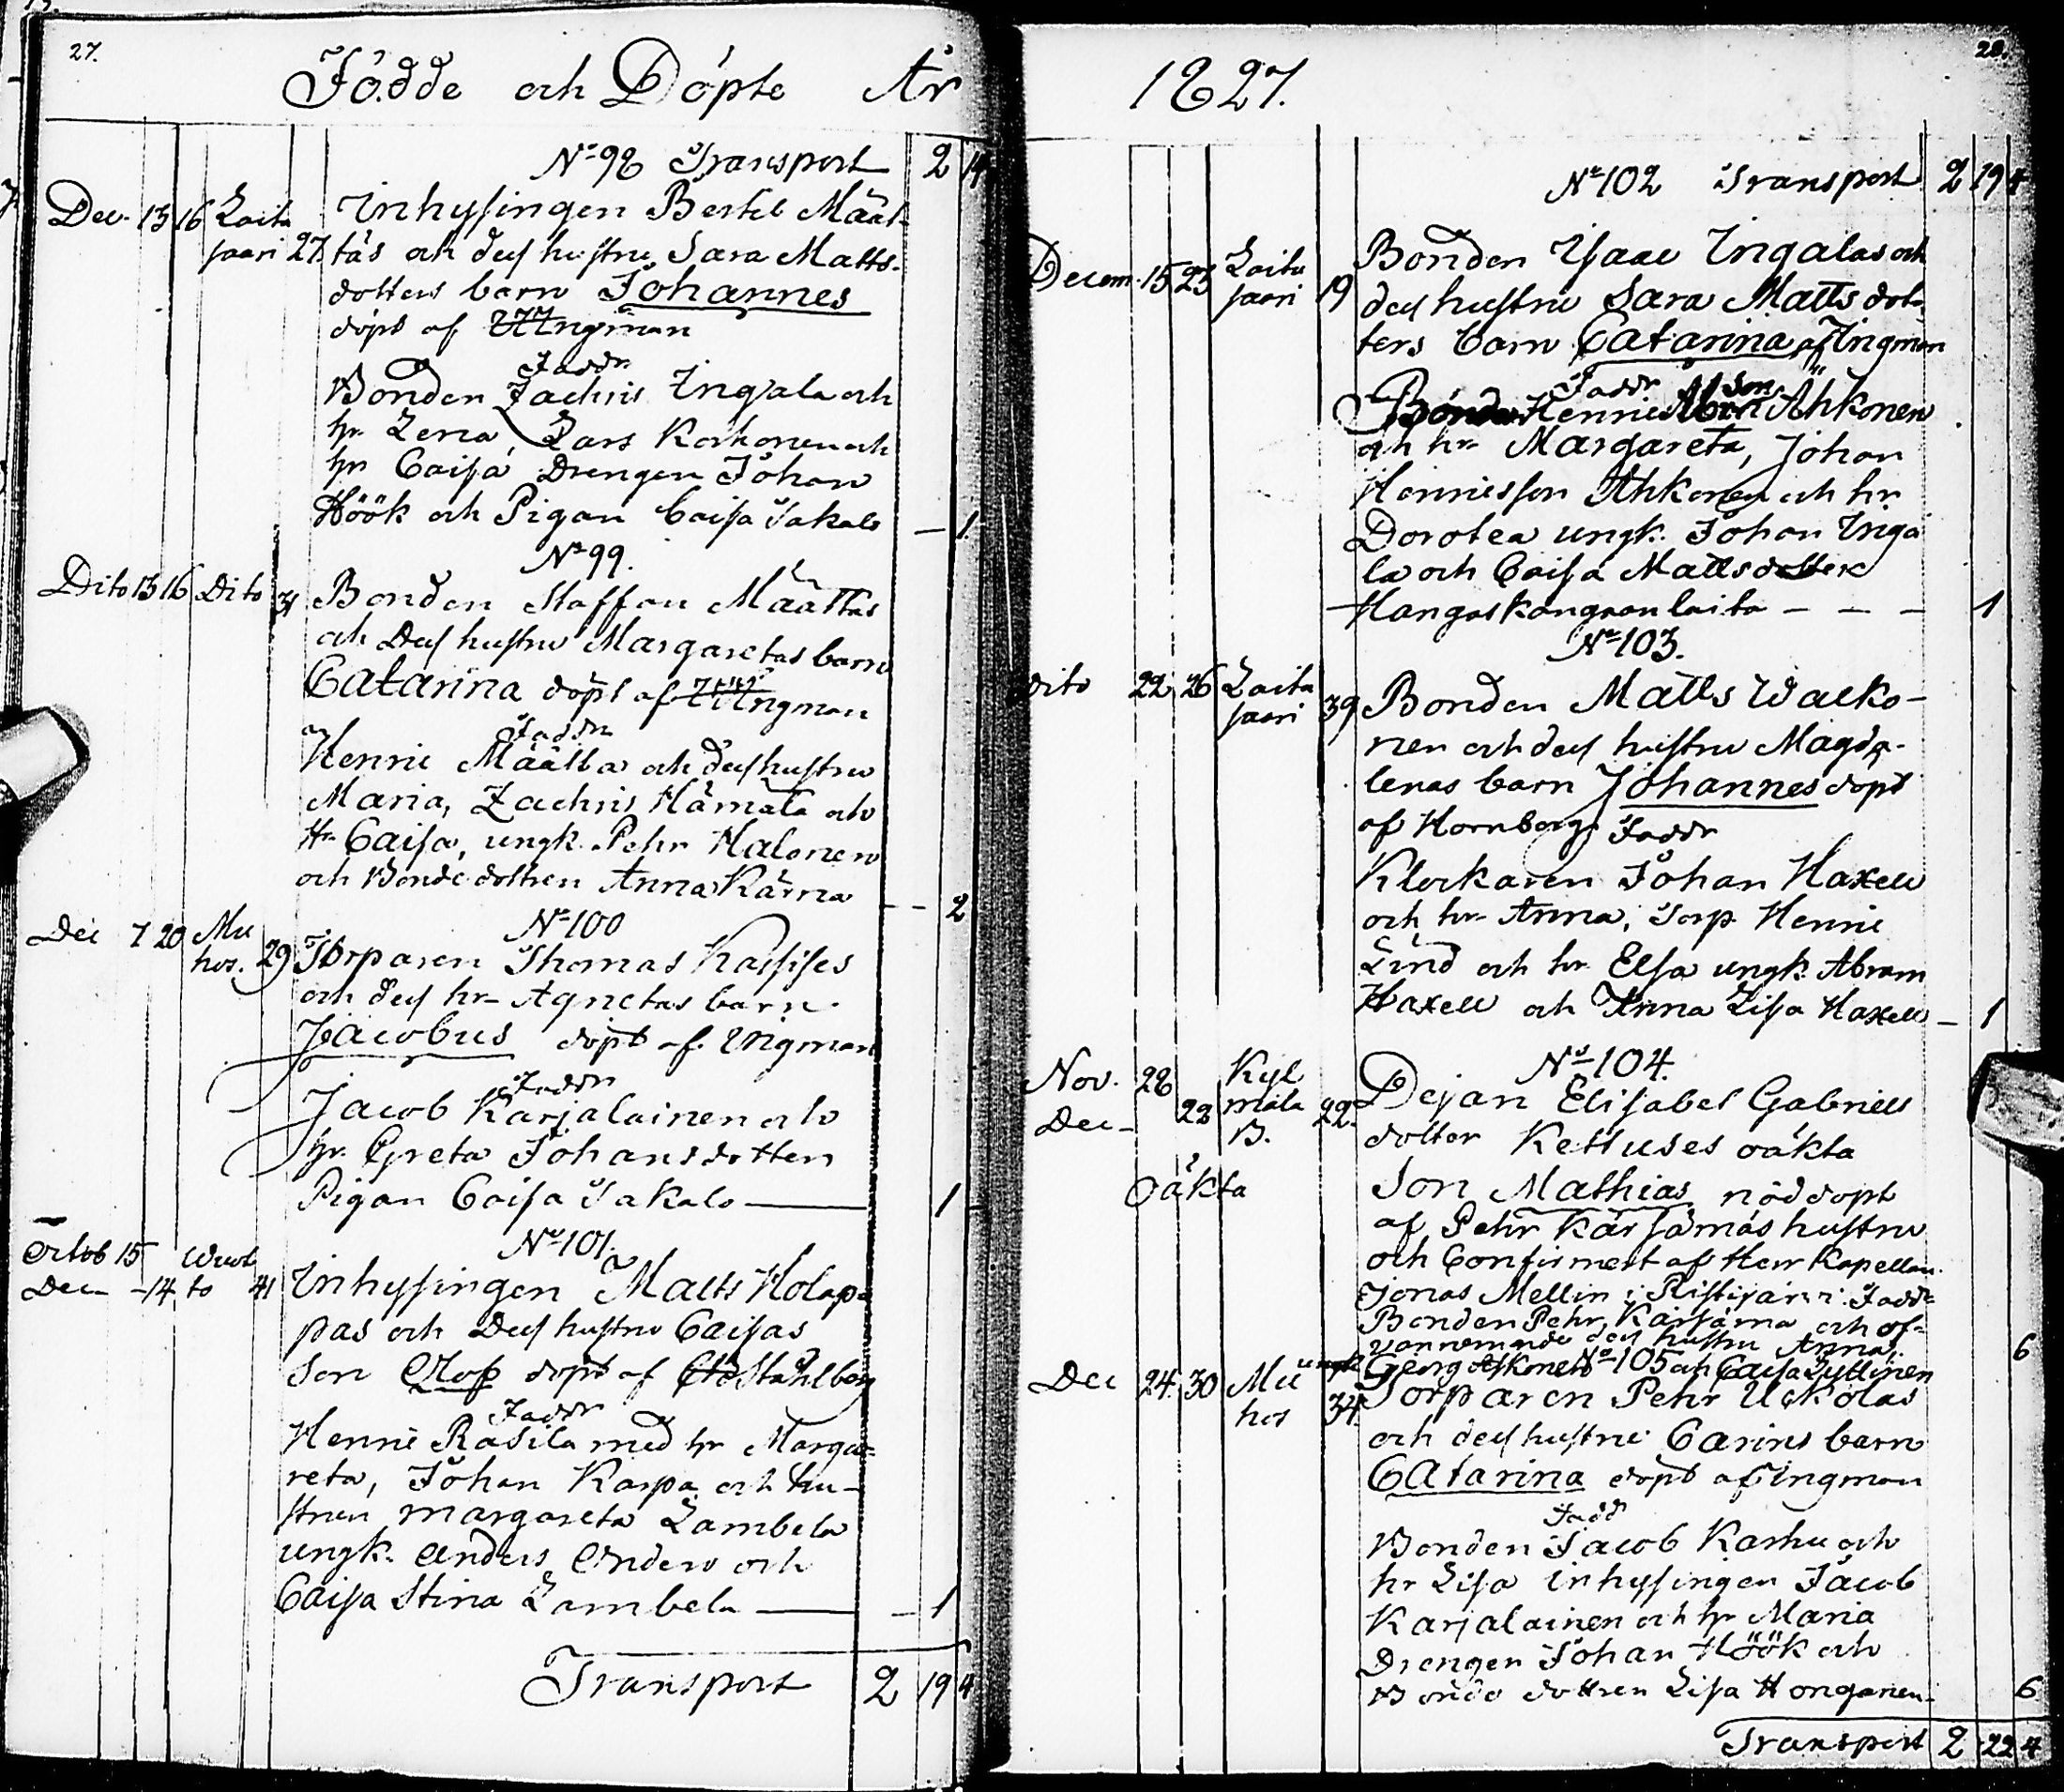 27.
Födde och Döpte År
No 98 Transport 2 14
Dec. 13 16 Laita Inhysingen Bertel Määt-
saari 27 täs och dess hustru Sara Matts-
dotters barn Johannes
döpt af Ingman
Faddr
Bonden Zachris Ingala och
hr Lena, Lars Korhonen och
hr Caisa Drengen Johan
Höök och Pigan Caisa Takalo — 1
No 99.
Dito 13 16 Dito 31 Bonden Staffan Määttäs
och Dess hustru Margaretas barn
Catarina döpt af Ingman
Faddr
Henric Määtta och dess hustru
Maria, Zachris Hämälä och
Hr Caisa, ungk. Pehr Halonen
och Bonde dottren Anna Kärnä — 2
No 100
Dec 7 20 Mu
hos. 29 Torparen Thomas Kassises
och dess hr Agnetas barn
Jacobus döpt af Ingman
Faddr
Jacob Karjalainen och
hr. Greta Johansdotter
Pigan Caisa Takalo — 1
No 101.
Octob 15 Wuol
Dec — 14 to 41 Inhysingen Matts Holap-
pas och Dess hustru Caisas
Son Olof döpt af Ståhlberg
Faddr
Henric Rasila med hr Marga-
reta, Johan Karpa och hu-
strun Margareta Lambela
ungk. Anders Anderw och
Caisa Stina Lambela — — 1
Transport 2 19 4
28.
1827.
No 102 Transport 2 19 4
Decem. 15 23 Laita Bonden Isaac Ingalas och
saari 19 dess hustru Sara Matts dot-
ters barn Catarina af Ingman
Faddr son
Henric Ähkonen
och hr Margareta, Johan
Henricsson Ähkonen och hr
Dorotea ungk. Johan Inga
la och Caisa Mattsdotter
Hangaskangaan laita — — — 1
No 103.
Dito 22 26 Laita
saari 39 Bonden Matts Walko-
nen och dess hustru Magda-
lenas barn Johannes döpt
af Hornborg Faddr
Klockaren Johan Haxell
och hr Anna, Torp. Henric
Lind och hr Elsa ungk. Abram
Haxell och Anna Lisa Haxell — 1
No 104.
Nov. 28 Kyl
Dec — 22 mälä 22. Dejan Elisabet Gabriels
B. dotter Kettuses oäkta
Oäkta Son Mathias nöddöpt
af Pehr Kärsämäs hustru
och Confirmert af Herr Kapellan
Jonas Mellin i Ristijärvi. Fadd-
Bonden Pehr Kärsämä och of-
vannemnde dess hustru Anna. 6
ungk Georg No 105 och Caisa Jyllinen
Dec 24 30 Mu
hos 34 Torparen Pehr Ukkolas
och dess hustru Carins barn
Catarina döpt af Ingman
Fadd
Bonden Jacob Karhu och
hr Lisa inhysingen Jacob
Karjalainen och hr Maria
Drengen Johan Höök och
Bonde dottren Lisa Honganen 6
Transport 2 22 4